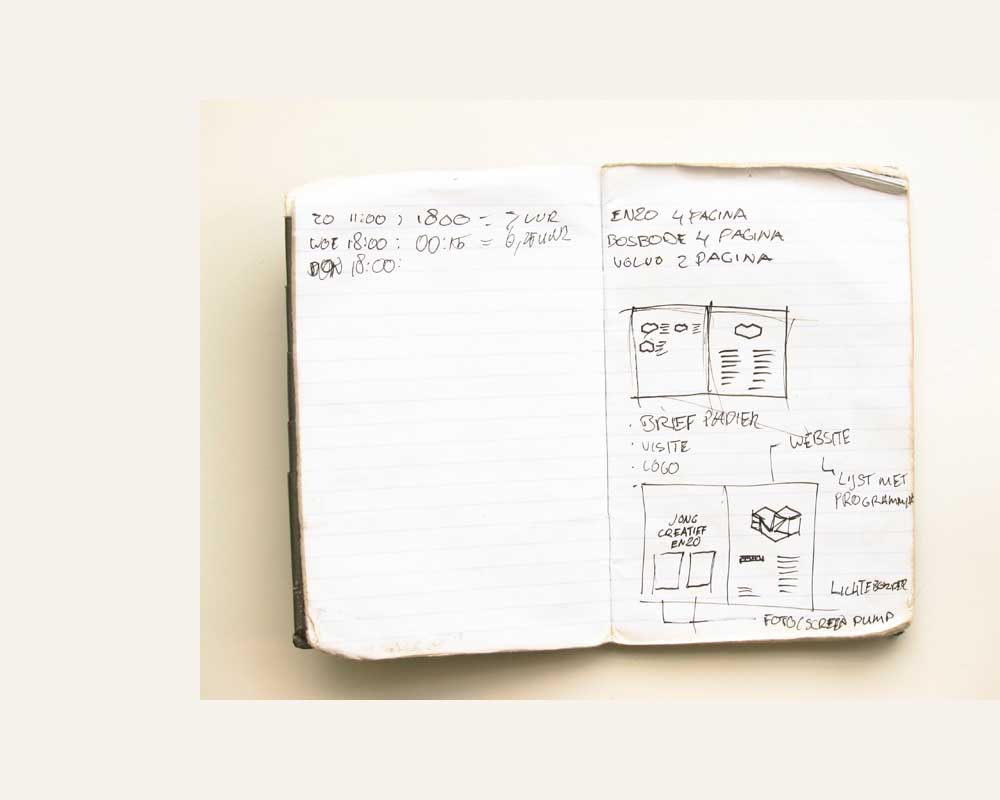 ZO 11:00 > 1800 = 7 UUR
WOE 18:00 : 00:15 = 6,25 UUR
DON 18:00:
ENZO 4 PAGINA
BOSBODE 4 PAGINA
VOLVO 2 PAGINA
· BRIEF PAPIER
· VISITE
· LOGO
WEBSITE
LIJST MET
PROGRAMMA
JONG
CREATIEF
ENZO
ENZO
FOTO/SCREEN DUMP